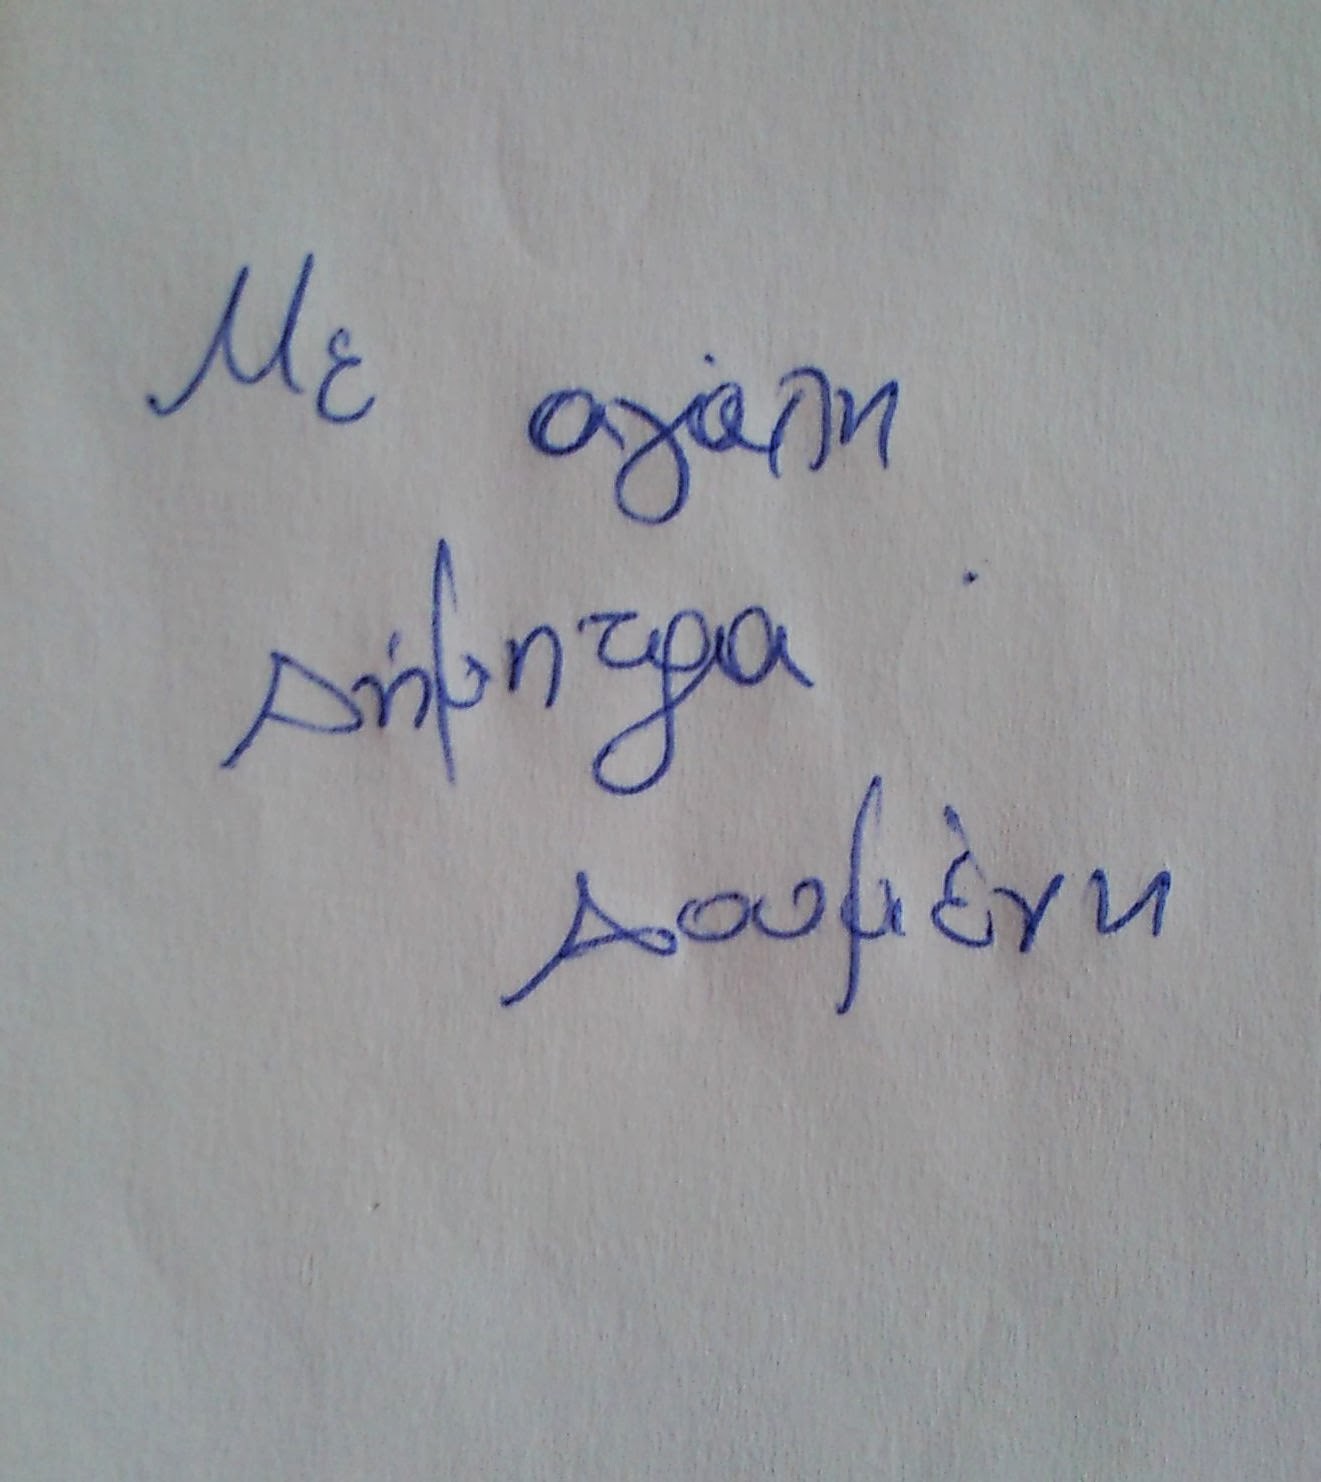 Με αγάπη
Δήμητρα
Δουμένη